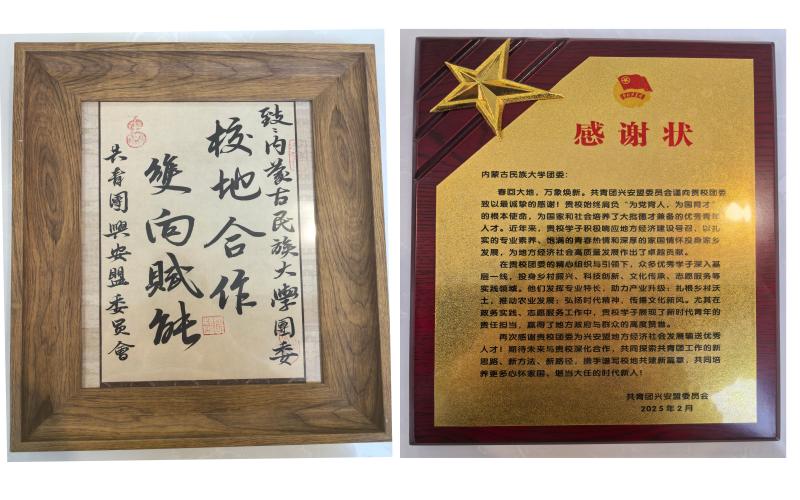 致：内蒙古民族大學團委
校地合作
雙向賦能
共青團興安盟委員會
感谢状
内蒙古民族大学团委：
春回大地，万象焕新。共青团兴安盟委员会谨向贵校团委
致以最诚挚的感谢！贵校始终肩负“为党育人，为国育才”
的根本使命，为国家和社会培养了大批德才兼备的优秀青年
人才。近年来，贵校学子积极响应地方经济建设号召，以扎
实的专业素养、饱满的青春热情和深厚的家国情怀投身家乡
发展，为地方经济社会高质量发展作出了卓越贡献。
在贵校团委的精心组织与引领下，众多优秀学子深入基
层一线，投身乡村振兴、科技创新、文化传承、志愿服务等
实践领域。他们发挥专业特长，助力产业升级；扎根乡村沃
土，推动农业发展；弘扬时代精神，传播文化新风。尤其在
政务实践、志愿服务工作中，贵校学子展现了新时代青年的
责任担当，赢得了地方政府与群众的高度赞誉。
再次感谢贵校团委为兴安盟地方经济社会发展输送优秀
人才！期待未来与贵校深化合作，共同探索共青团工作的新
思路、新方法、新路径，携手谱写校地共建新篇章，共同培
养更多心怀家国、堪当大任的时代新人！
共青团兴安盟委员会
2025年2月